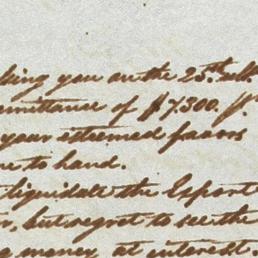 king you on the 25th ult.
mittance of $7.300.
your esteemed favors
e to hand.
liquidate the Export
but regret to see the
money at interest.